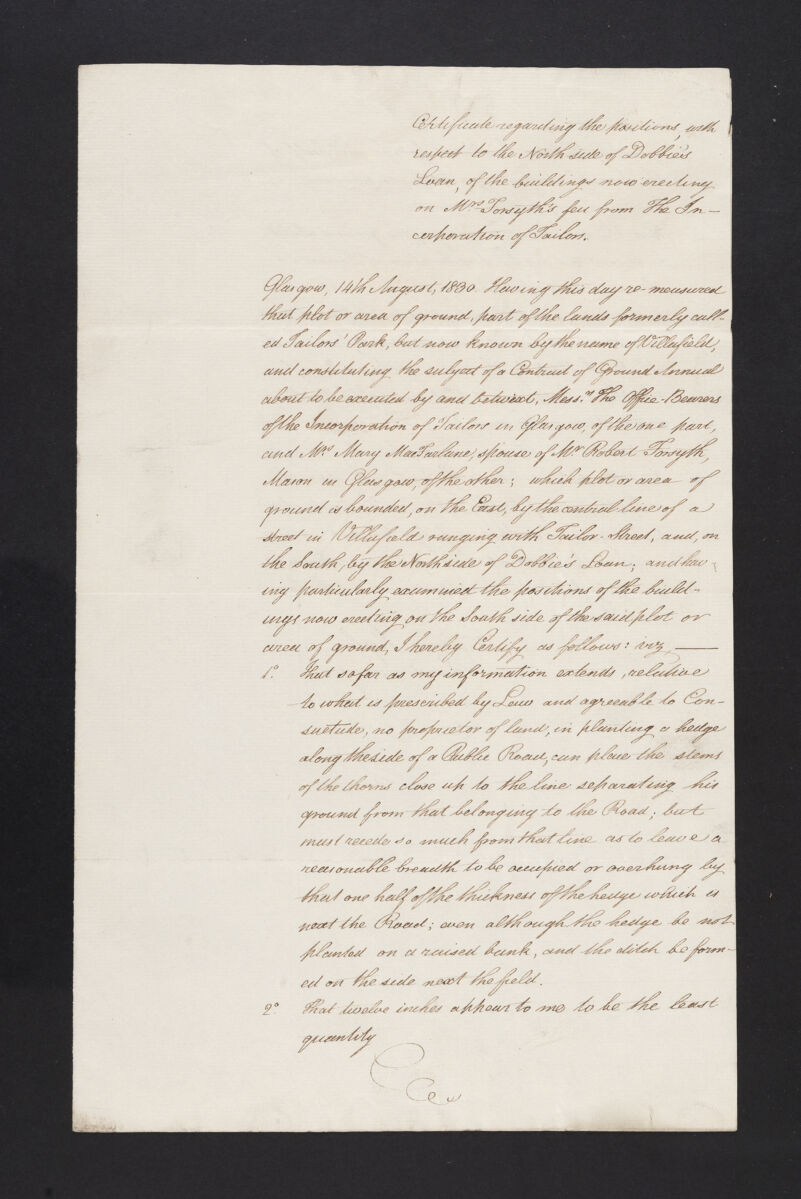 Certificate regarding the positions, with
respect to the North side of Dobbie's
Loan, of the buildings now erecting
on Mrs. Forsyth's feu from The In-
corporation of Tailors.
Glasgow, 14th August, 1830. Having this day re-measured
that plot or area of ground, part of the lands formerly call-
ed Tailors' Park, but now known by the name of Villafield,
and constituting the subject of a Contract of Ground Annual
about to be executed by and betwixt, Messrs. The Office-Bearers
of the Incorporation of Tailors in Glasgow, of the one part,
and Mrs. Mary MacFarlane, spouse of Mr. Robert Forsyth,
Mason in Glasgow, of the other; which plot or area of
ground is bounded, on the East, by the central line of a
street in Villafield ranging with Tailor-Street, and, on
the South, by the North side of Dobbie's Loan; and hav-
ing particularly examined the positions of the build-
ings now erecting on the South side of the said plot or
area of ground, I hereby Certify as follows: viz,
1o. That so far as my information extends, relative
to what is prescribed by Law and agreeable to Con-
suetude, no proprietor of land, in planting a hedge
along the side of a Public Road, can place the stems
of the thorns close up to the line separating his
ground from that belonging to the Road; but
must recede so much from that line as to leave a
reasonable breadth to be occupied or overhung by
that one half of the thickness of the hedge which is
next the Road; even although the hedge be not
planted on a raised bank, and the ditch be form-
ed on the side next the field.
2o. That twelve inches appear to me to be the least
quantity